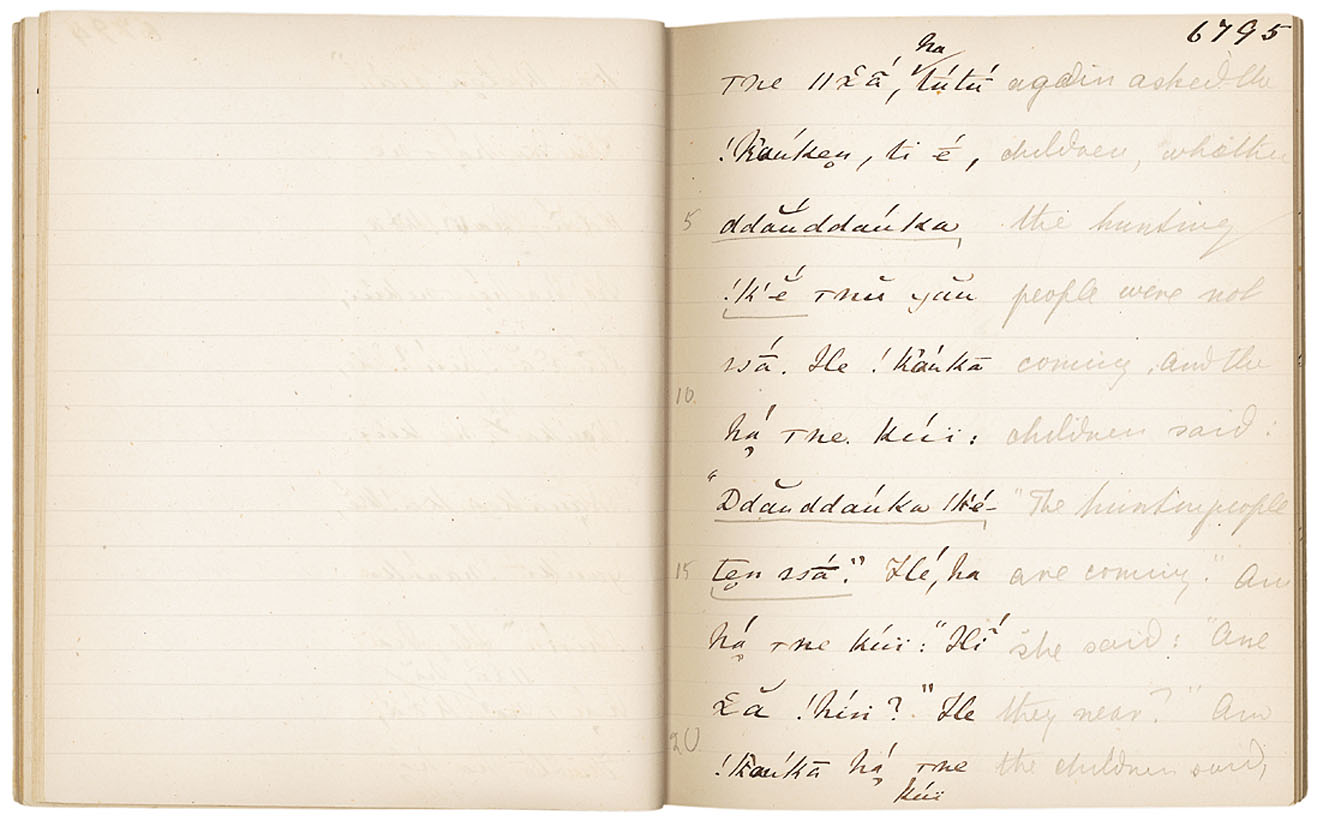 6795
ha
Tne ||χā́, tútú again asked the
!k̃aúken̥, ti é̠, children, whether
5 ddắuddaúka the hunting
!k'é̆ Tnĕ yău people were not
ssā́. He !k̃aúkā coming. And the
10
hạ́ Tne kúï: children said:
"Ddắuddaúka !k'é- "The hunting people
15 ten̥ ssā́." Hé, ha are coming." An
hạ́ Tne kúï: "Hí she said: "Are
χā̆ !híïi?" He they near?" An
20
!k̃aúkā hạ́ Tne the children said,
kúï